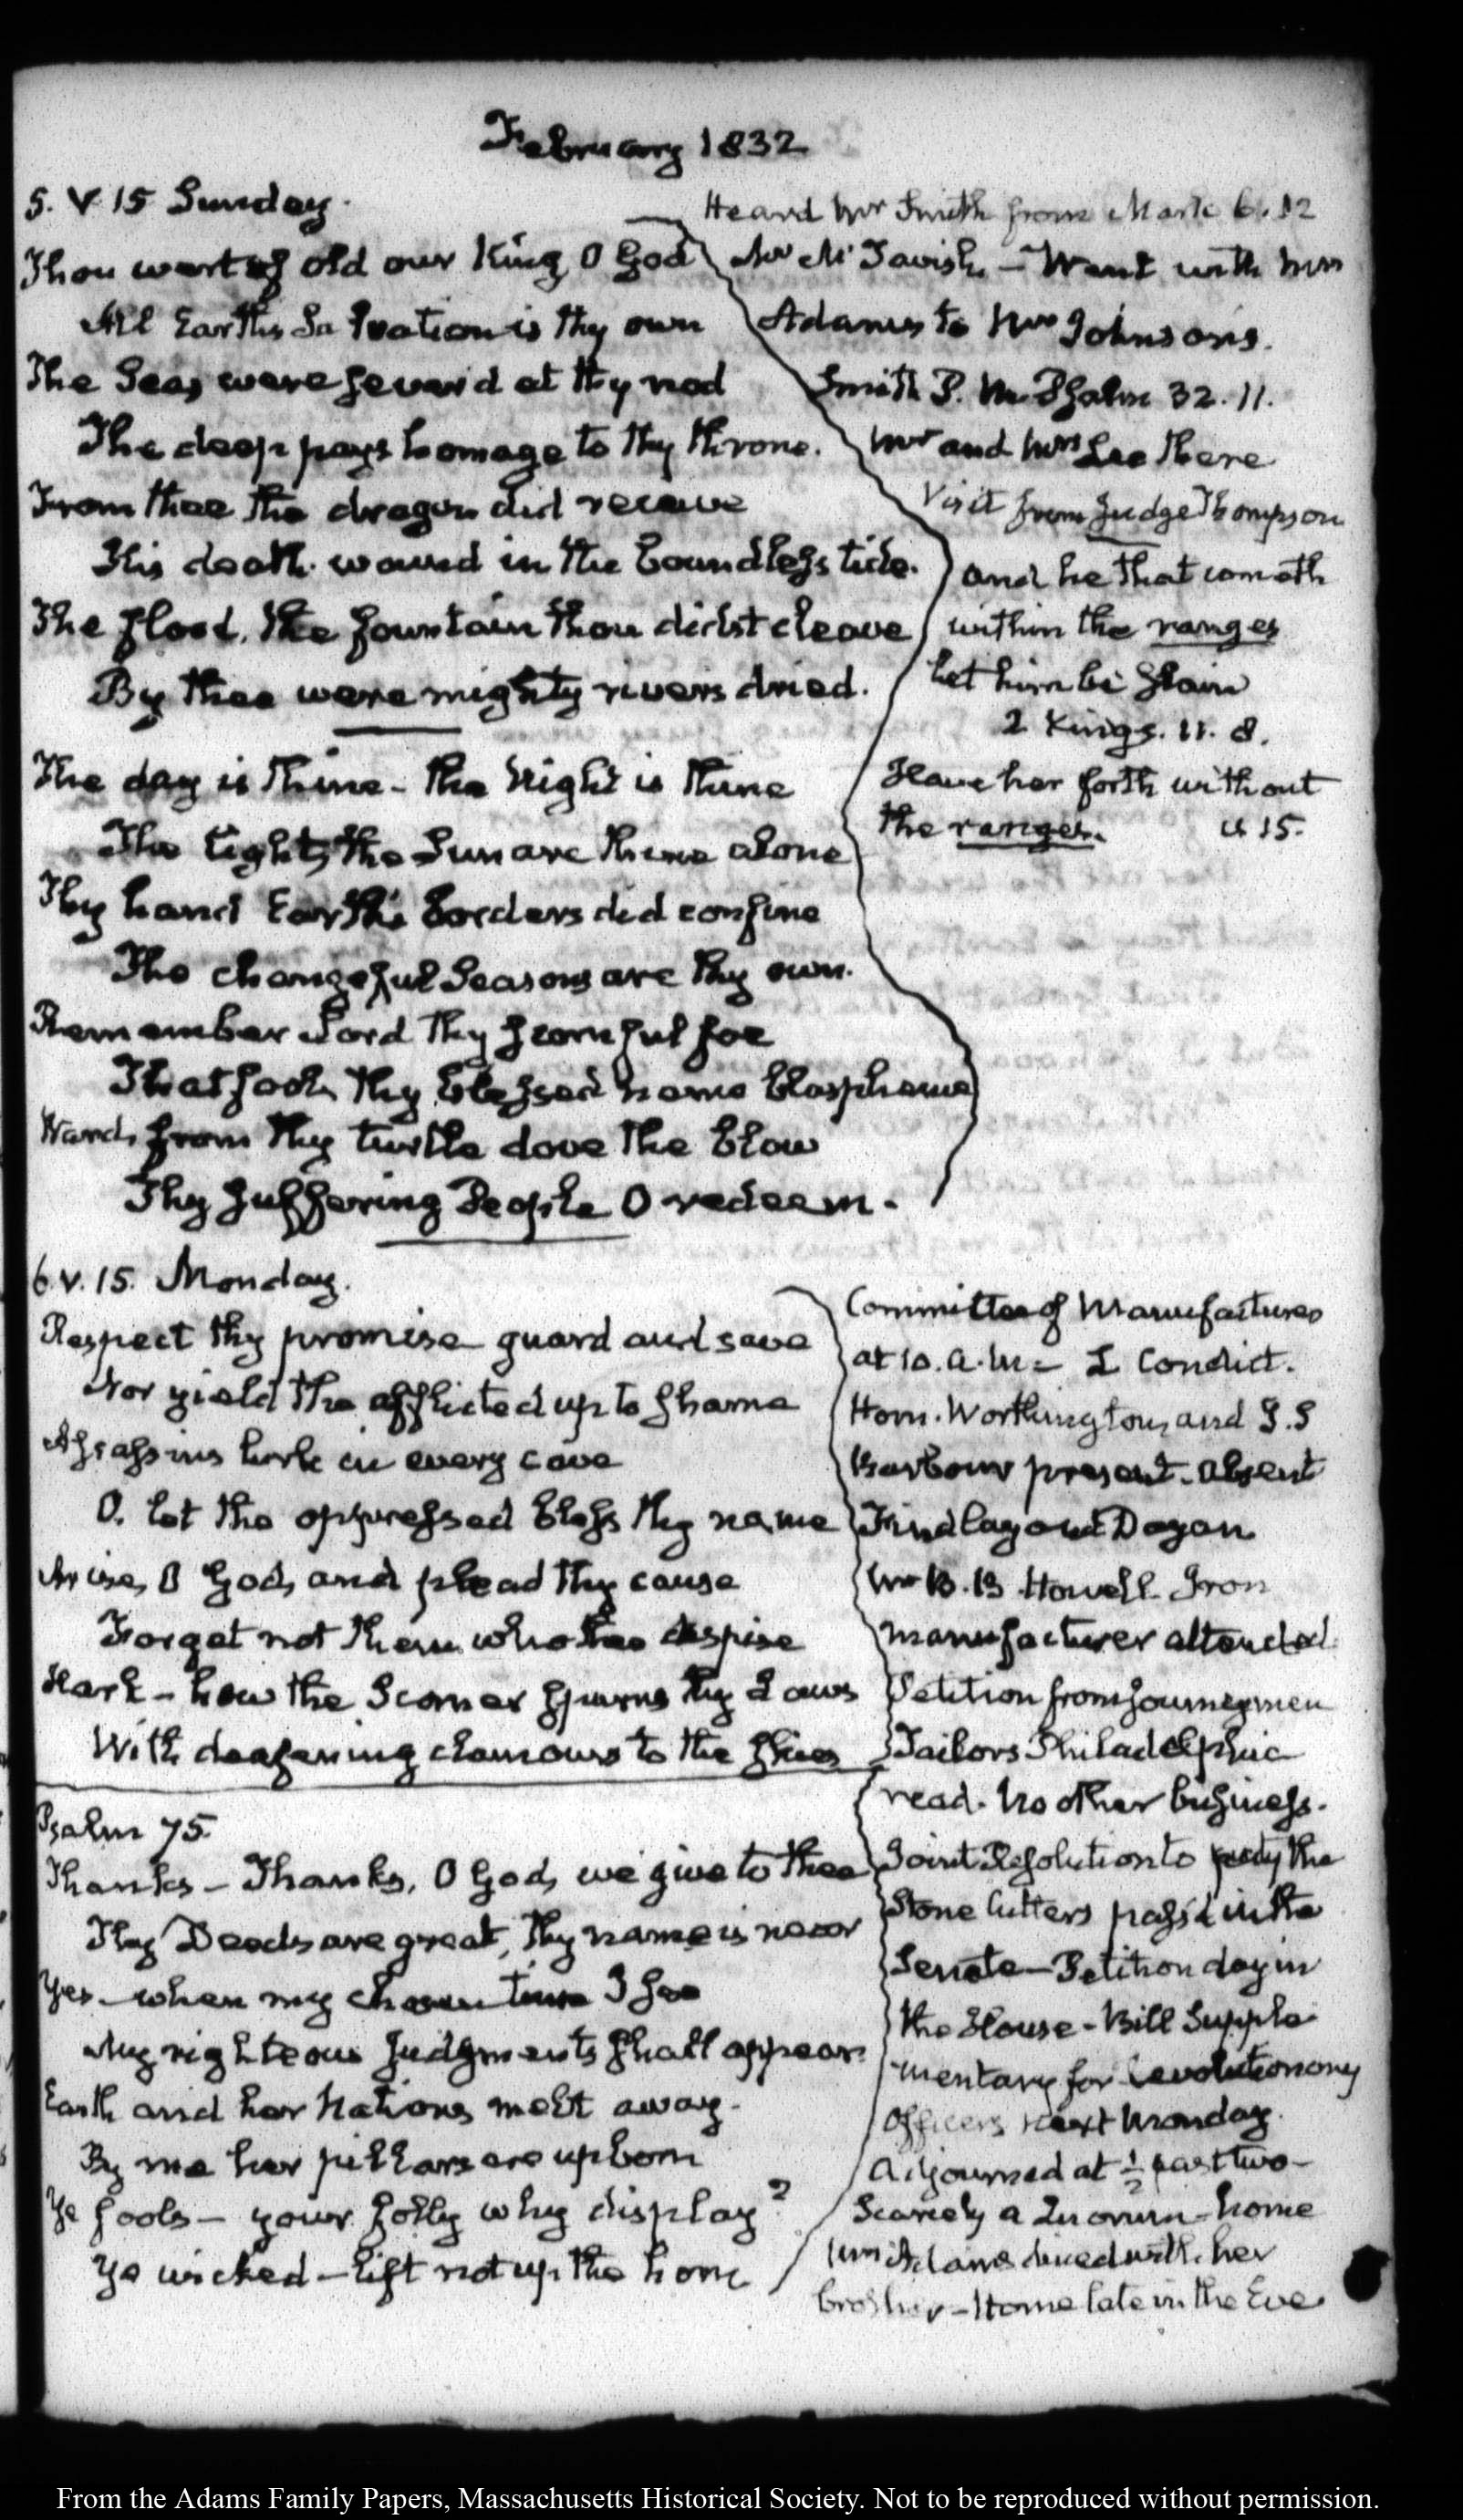 February 1832
5. V. 15 Sunday.
Thou wert of old our King, O God
All Earth's Salvation is thy own
The Seas were sever'd at thy nod
The deep pays homage to thy throne.
From thee the dragon did receive
His death wound in the boundless tide.
The flood, the fountain thou didst cleave
By thee were mighty rivers dried.
The day is thine - the Night is thine
The lights, the Sun are thine alone
Thy hand Earth's borders did confine
The changeful Seasons are thy own.
Remember Lord thy scornful foe
That fools thy blessed name blaspheme
Ward, from thy turtle dove the blow
Thy suffering People O redeem.
Heard Mr Smith from Mark 6. 12
Mr McTavish - Went with Mrs
Adams to Mrs Johnson's.
Smith P. M. Psalm 32. 11.
Mr and Mrs Lee there
Visit from Judge Thompson
and he that cometh
within the ranges
let him be slain
2 Kings. 11. 8.
Have her forth without
the ranges. v 15.
6. V. 15. Monday.
Respect thy promise guard and save
Nor yield the afflicted up to shame
Assassins lurk in every cave
O. let the oppressed bless thy name
Arise, O God, and plead thy cause
Forget not them who thee despise
Hark - how the Scorner spurns thy Laws
With deafening clamours to the skies
Psalm 75.
Thanks - Thanks, O God, we give to thee
Thy Deeds are great, thy name is near
Yes - when my chosen time I see
My righteous judgments shall appear.
Earth and her Nations melt away.
By me her pillars are upborn
Ye fools - your folly why display?
Ye wicked - lift not up the horn
Committee of Manufactures
at 10. A. M - L Condict.
Horn. Worthington, and J. S
Barbour present. absent
Findlay and Dayan
Mr B. B Howell Iron
manufacturer attended.
Petition from Journeymen
Tailors Philadelphia
read. No other business.
Joint Resolution to pay the
Stone Cutters pass'd in the
Senate - Petition day in
the House - Bill Supple-
-mentary for revolutionary
Officers next Monday.
Adjourned at ½ past two -
Scarcely a Quorum - home
Mrs Adams dined with her
brother - Home late in the Eve.
From the Adams Family Papers, Massachusetts Historical Society. Not to be reproduced without permission.